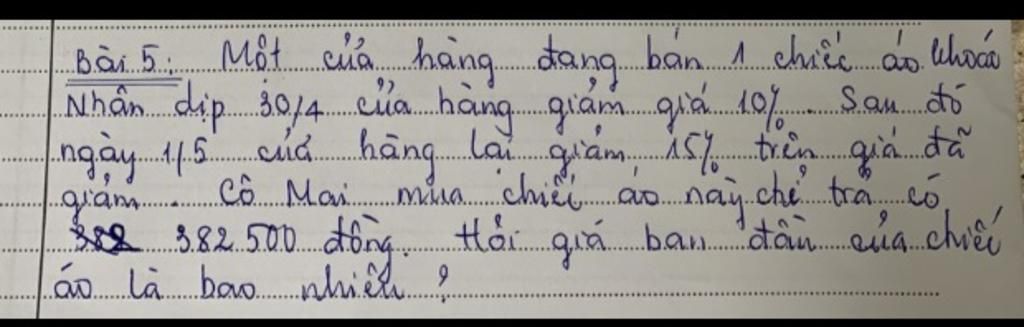 Bài 5: Một cửa hàng đang bán 1 chiếc áo khoác
Nhân dịp 30/4 cửa hàng giảm giá 10%. Sau đó
ngày 1/5 cửa hàng lại giảm 15% trên giá đã
giảm. Cô Mai mua chiếc áo này chỉ trả có
382 382 500 đồng. Hỏi giá ban đầu của chiếc
áo là bao nhiêu?